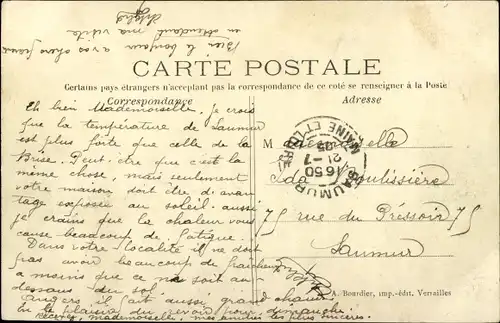 Bien le bonjour à vos chers frères
en attendant ma visite
CARTE POSTALE
Certains pays étrangers n'acceptant pas la correspondance de ce coté se renseigner à la Poste
Correspondance
Adresse
Eh bien Mademoiselle, je crois
que la température de Saumur
est plus forte que celle de la
Brise. Peut-être que c'est la
même chose, mais seulement
votre maison doit être d'avan
tage exposée au soleil aussi
je crains que la chaleur vous
cause beaucoup de fatigue.
Dans votre localité il ne doit
pas avoir beaucoup de fraicheur
a moins que ce ne soit au
dessous du sol.
Angers, il fait aussi, grand chaud
le plaisir de vous revoir pour dimanche.
recevez, mademoiselle, mes amitiés les plus sincères.
Mademoiselle
Ida
75 rue du Pressoir 75
Saumur
SAUMUR
16 50
21 - 7
MAINE ET LOIRE
A. Bourdier, imp.-édit. Versailles